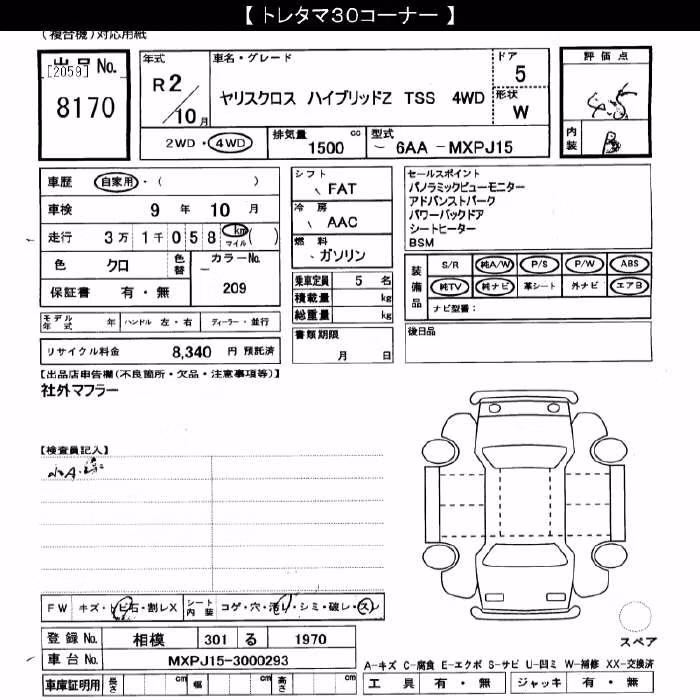 【 トレタマ30コーナー 】
(複合機)対応用紙
出品 No.
[2059]
8170
年式
R 2 / 10 月
車名・グレード
ヤリスクロス ハイブリッドZ TSS 4WD
ドア
5
形状
W
2WD ・ 4WD
排気量
1500 cc
型式
6AA － MXPJ15
評価点
4.5
内装
B
車歴 自家用 ・ ( )
車検 9 年 10 月
走行 3万 1千 0 5 8 km マイル ( )
色 クロ
色替
カラーNo.
209
保証書 有 ・ 無
シフト
FAT
冷房
AAC
燃料
ガソリン
乗車定員 5 名
積載量 kg
総重量 kg
セールスポイント
パノラミックビューモニター
アドバンストパーク
パワーバックドア
シートヒーター
BSM
装備品
S/R 純A/W P/S P/W ABS
純TV 純ナビ 革シート 外ナビ エアB
ナビ型番:
モデル年式 年 ハンドル 左・右 ディーラー・並行
リサイクル料金 8,340 円 預託済
書類期限
月 日
後日品
【出品店申告欄(不良箇所・欠品・注意事項等)】
社外マフラー
【検査員記入】
FW キズ・トビ石・割レX
シート内装 コゲ・穴・汚レ・シミ・破レ・スレ
登録 No. 相模 301 る 1970
車台 No. MXPJ15-3000293
車庫証明用 長さ cm 幅 cm 高さ cm
スペア
A-キズ C-腐食 E-エクボ S-サビ U-凹ミ W-補修 XX-交換済
工具 有 ・ 無 ジャッキ 有 ・ 無